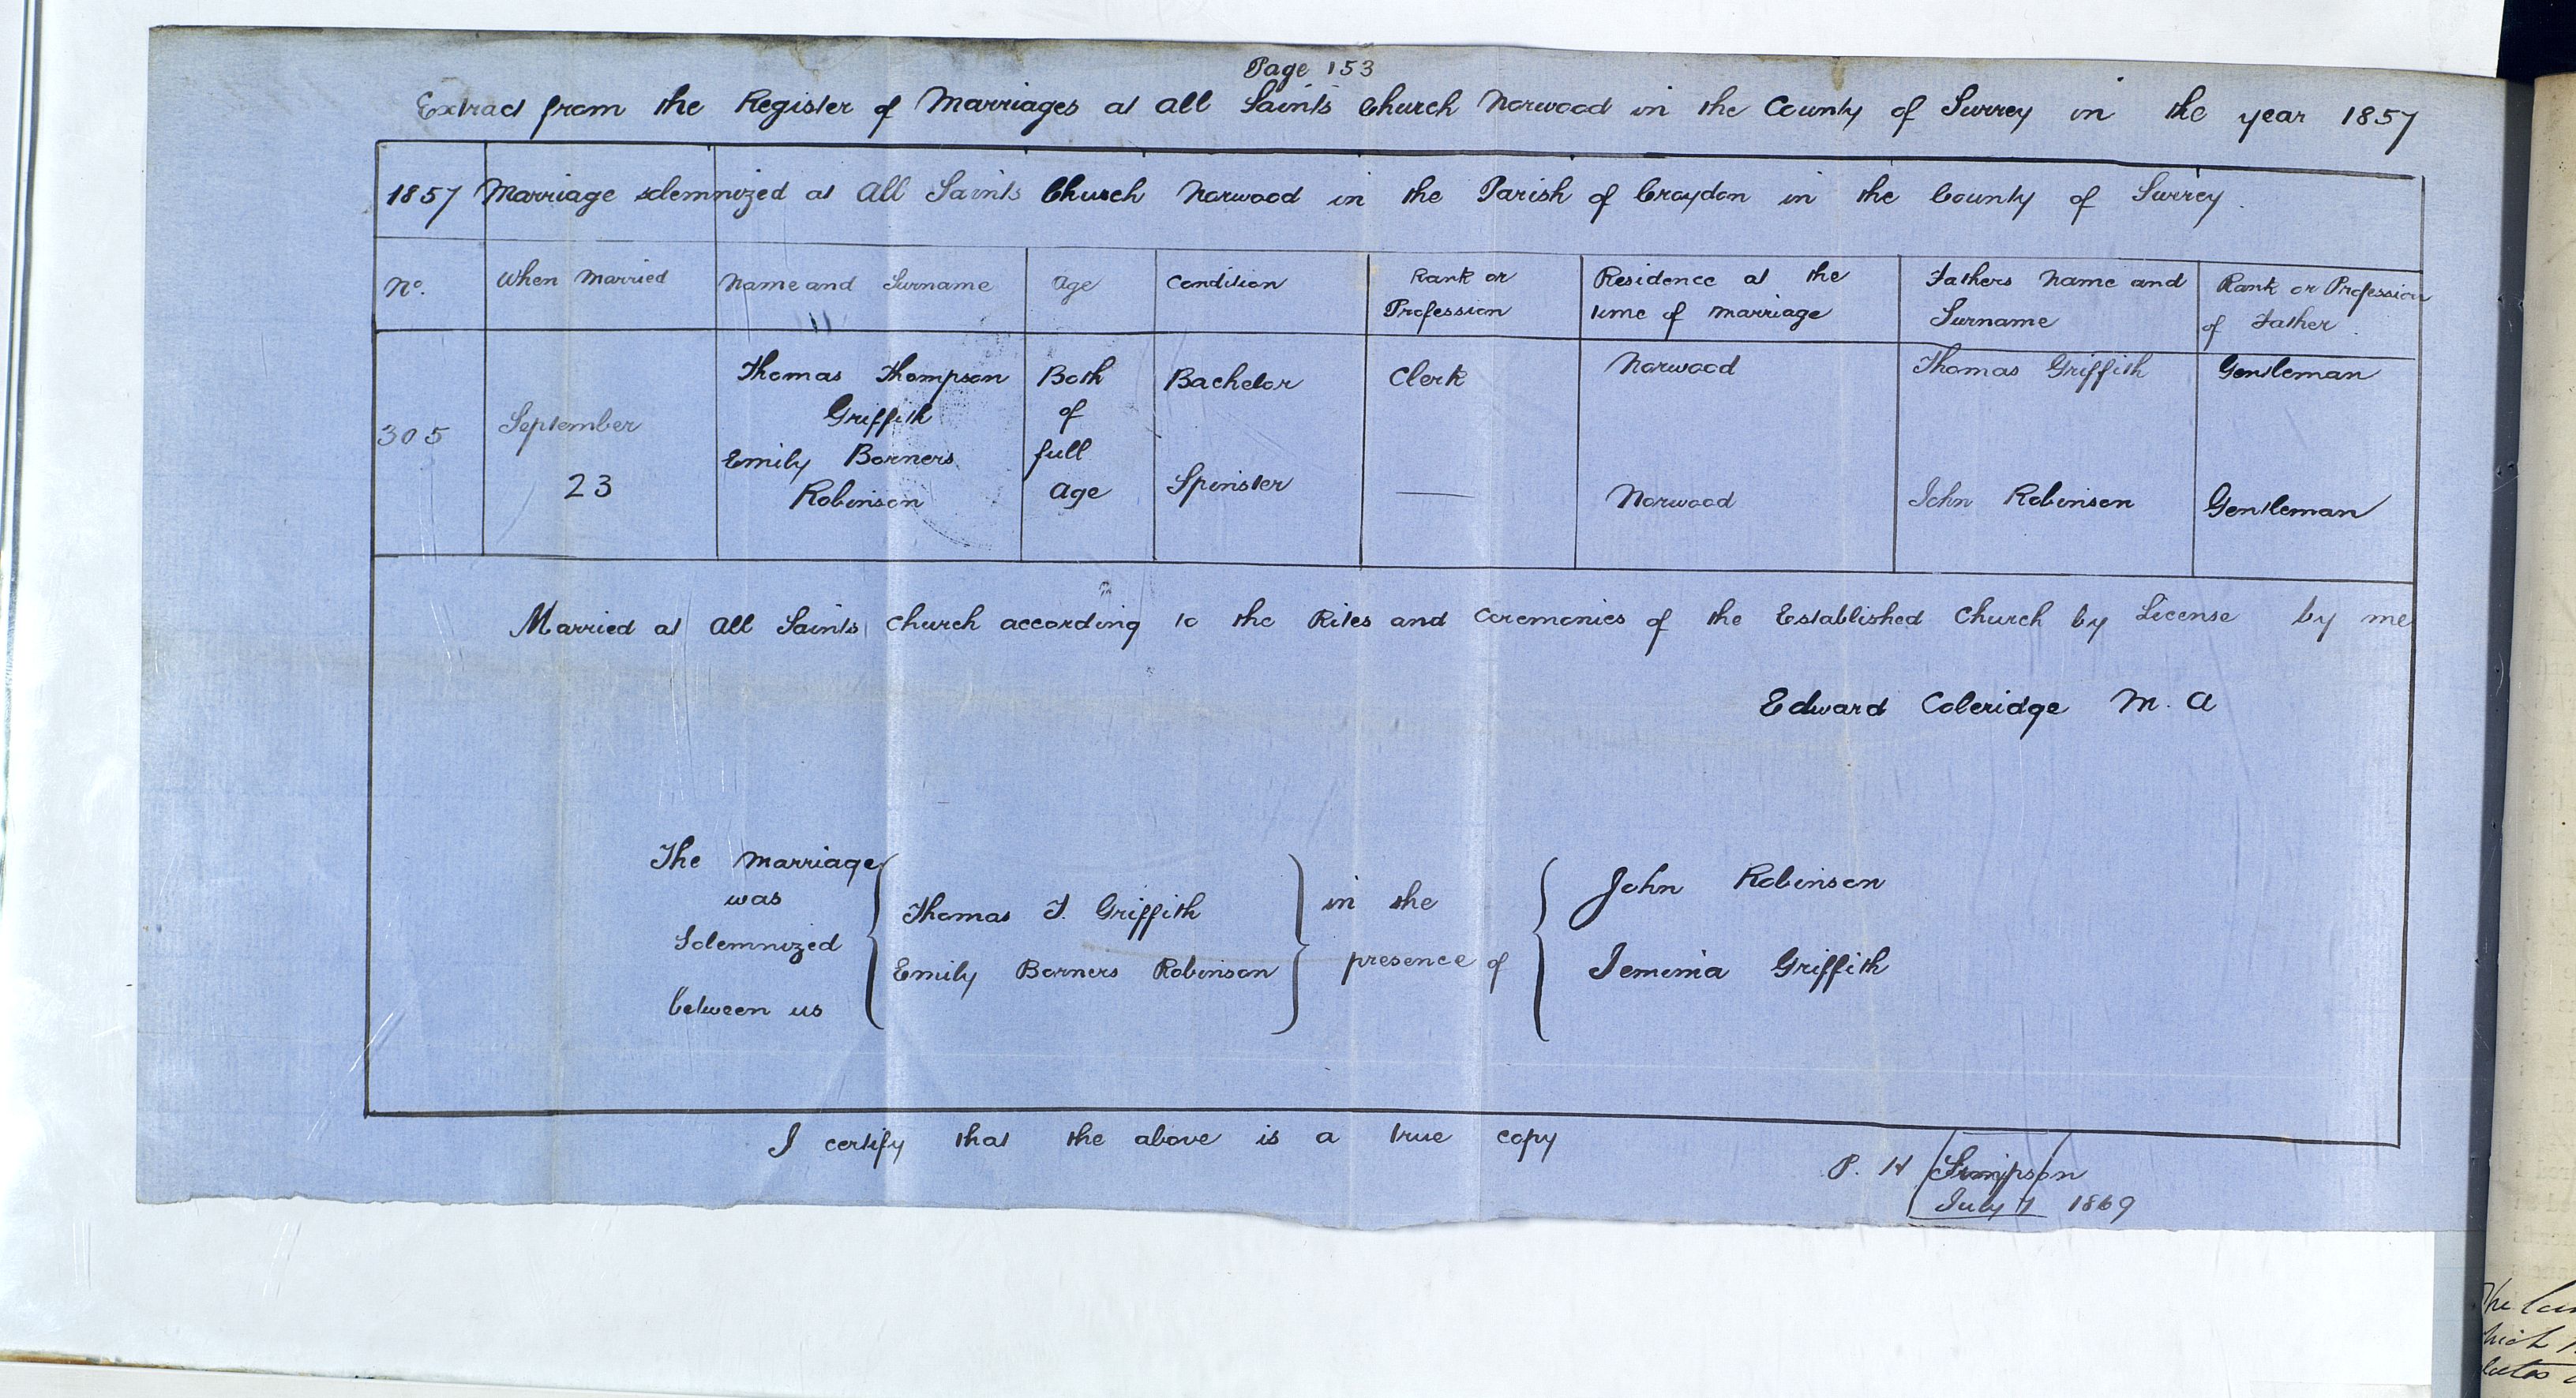 Page 153
Extract from the Register of Marriages at All Saints Church Norwood in the County of Surrey in the year 1857
1857 Marriage solemnized at All Saints Church Norwood in the Parish of Croydon in the County of Surrey.
No. When Married Name and Surname Age Condition Rank or Profession Residence at the time of marriage Fathers Name and Surname Rank or Profession of Father.
305 September 23
Thomas Thompson Griffith Both of full Age Bachelor Clerk Norwood Thomas Griffith Gentleman
Emily Borners Robinson Spinster — Norwood John Robinson Gentleman
Married at All Saints Church according to the Rites and Ceremonies of the Established Church by License by me
Edward Coleridge M. A
The Marriage
was
Solemnized
between us
Thomas T. Griffith
Emily Borners Robinson
in the
presence of
John Robinson
Jemima Griffith
I certify that the above is a true copy
P. H Simpson
July 7 1869